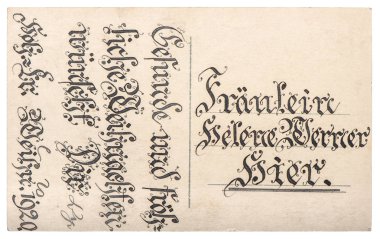 Gesunde und fröh-
liche Weihnachten
wünscht Dir
Weihn. 1920.
Fräulein
Helene Werner
Hier.